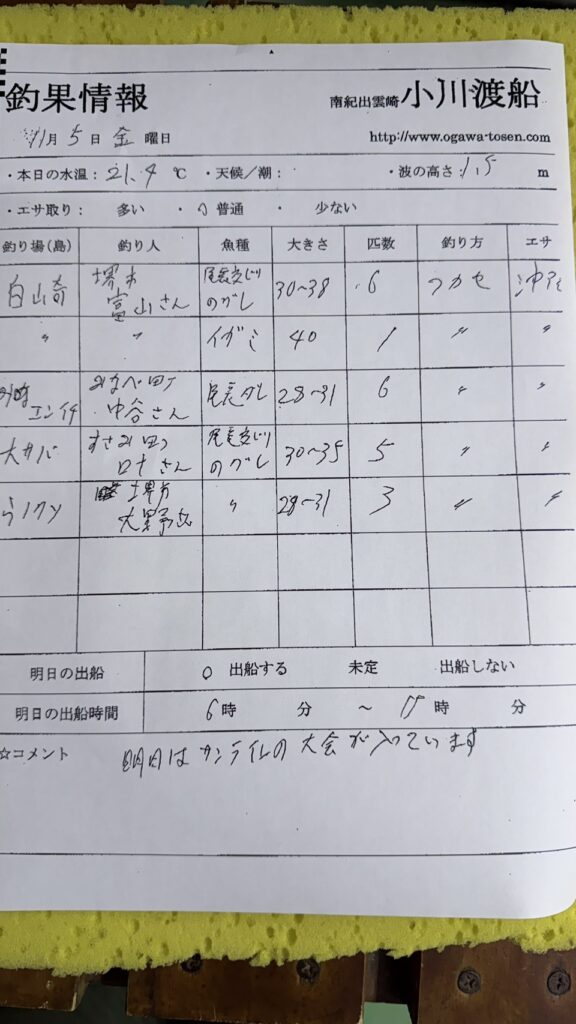 釣果情報
南紀出雲崎 小川渡船
11月 5 日 金 曜日
http://www.ogawa-tosen.com
・本日の水温：21.4 ℃ ・天候／潮： ・波の高さ：1.5 m
・エサ取り： 多い ・ 普通 ・ 少ない
釣り場（島） 釣り人 魚種 大きさ 匹数 釣り方 エサ
白山崎 堺市 富山さん 尾長交じりのグレ 30〜38 6 フカセ
〃 〃 イガミ 40 1 〃 〃
エントチ みなべ町 中谷さん 尾長グレ 28〜31 6 〃 〃
大サバ すさみ町 さん 尾長交じりのグレ 30〜35 5 〃 〃
堺市 大野 〃 28〜31 3 〃 〃
明日の出船 出船する 未定 出船しない
明日の出船時間 6時 分 〜 時 分
☆コメント 明日は サンラインの 大会が入っています